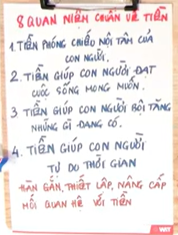 8 QUAN NIỆM CHUẨN VỀ TIỀN
1. TIỀN PHÓNG CHIẾU NỘI TÂM CỦA
CON NGƯỜI.
2. TIỀN GIÚP CON NGƯỜI ĐẠT
CUỘC SỐNG MONG MUỐN.
3 TIỀN GIÚP CON NGƯỜI BỘI TĂNG
NHỮNG GÌ ĐANG CÓ.
4. TIỀN GIÚP CON NGƯỜI
TỰ DO THỜI GIAN
HÀN GẮN, THIẾT LẬP, NÂNG CẤP
MỐI QUAN HỆ VỚI TIỀN